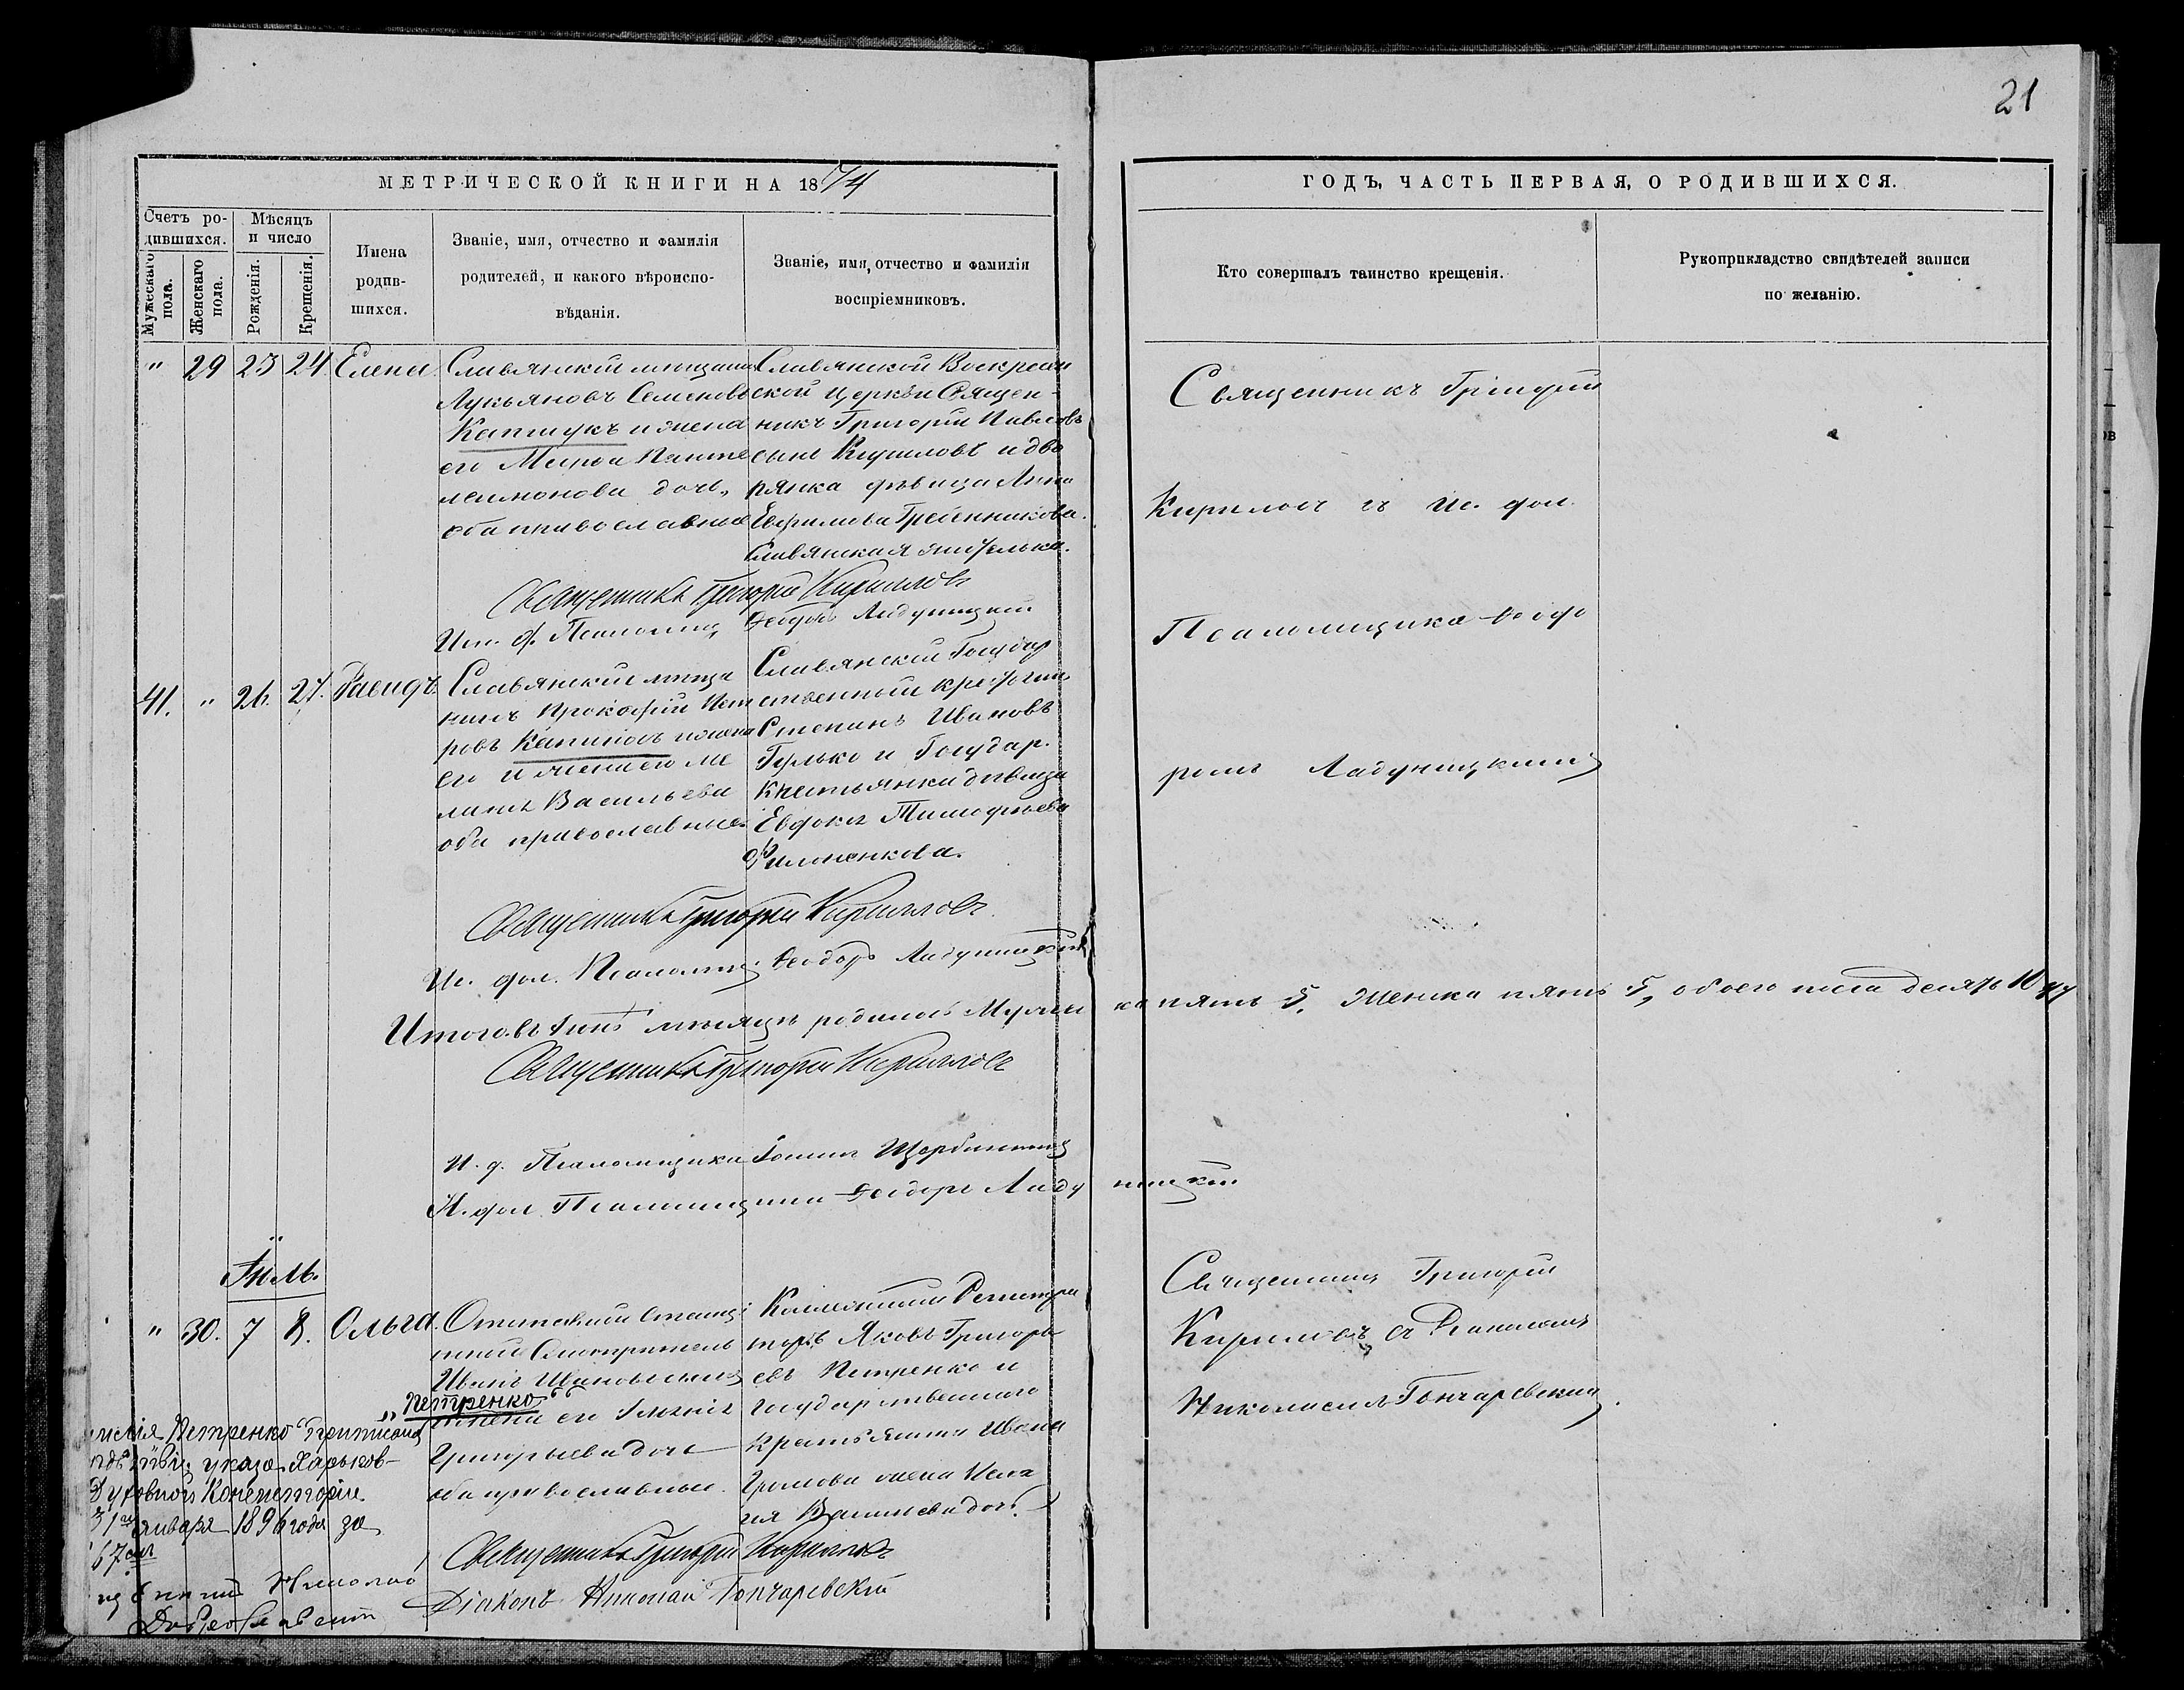 21
МЕТРИЧЕСКОЙ КНИГИ НА 1874
ГОДЪ, ЧАСТЬ ПЕРВАЯ, О РОДИВШИХСЯ.
Счетъ ро-
дившихся.
Мужескаго пола.
Женскаго пола.
Мѣсяцъ
и число
Рожденія.
Крещенія.
Имена
родив-
шихся.
Званіе, имя, отчество и фамилія
родителей, и какого вѣроиспо-
вѣданія.
Званіе, имя, отчество и фамилія
воспріемниковъ.
Кто совершалъ таинство крещенія.
Рукоприкладство свидѣтелей записи
по желанію.
" 29 23 24 Елена.
Славянскій мещанинъ
Лукьяновъ Семеновъ
и жена
его
доч.
оба православные
Славянской Воскресен
ской Церкви Священ-
никъ Григорій Павловъ
сынъ Кириловъ и дво
рянка дѣвица Анна
Ефимова Гребенникова.
Славянская жителька.
Священникъ Григорій
Кириловъ съ Ис. дол.
Псаломщика Ѳеодо
ромъ Ладуницкимъ
Священникъ Григорій Кириловъ
Исп. д. Псаломщ Ѳеодоръ Ладуницкій
41. " 26. 27. Давидъ.
Славянскій меща
нинъ Прокофій Пет
ровъ и жена
его
Васильева
оба православные.
Славянскій Государ
ственный крестьян
Степанъ Ивановъ
Гулько и Государ.
Крестьянка дѣвица
Евдокія Тимофѣева
Филоненкова.
Священникъ Григорій Кириловъ
Ис. дол. Псаломщ. Ѳеодоръ Ладуницкій
Итого въ Іюнѣ мѣсяцѣ родилось Мужес ка пять 5, Женска пять 5, обоего пола десять 10
Священникъ Григорій Кириловъ
И. д. Псаломщика Іоаннъ Щербин
И. дол Псаломщика Ѳеодоръ Ладу ницкій
Іюль.
" 30. 7 8. Ольга.
Станц
Смотритель
Иванъ Ивановъ
„Петренко“
жена его
Григорьева дочь
оба православные.
Коллежскій Регистра
торъ Яковъ Григорь
евъ Петренко и
государственнаго
Крестьянина Ивана
Громова жена Пела
гія Васильева дочь.
Священникъ Григорій
Кириловъ съ Діакономъ
Николаемъ Гончаревскимъ.
милія Петренко приписана
указа Харьков-
Духовной Консисторіи
31го января 1896 года за
67
Николай
Священникъ Григорій Кириловъ
Діаконъ Николай Гончаревскій